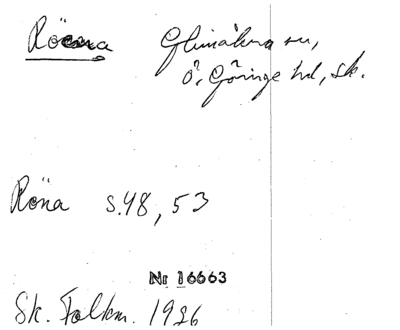 Röena Glimåkra sn,
Ö. Göinge hd, Sk.
Röna s. 48, 53
Nr 16663
Sk. Folkm. 1926